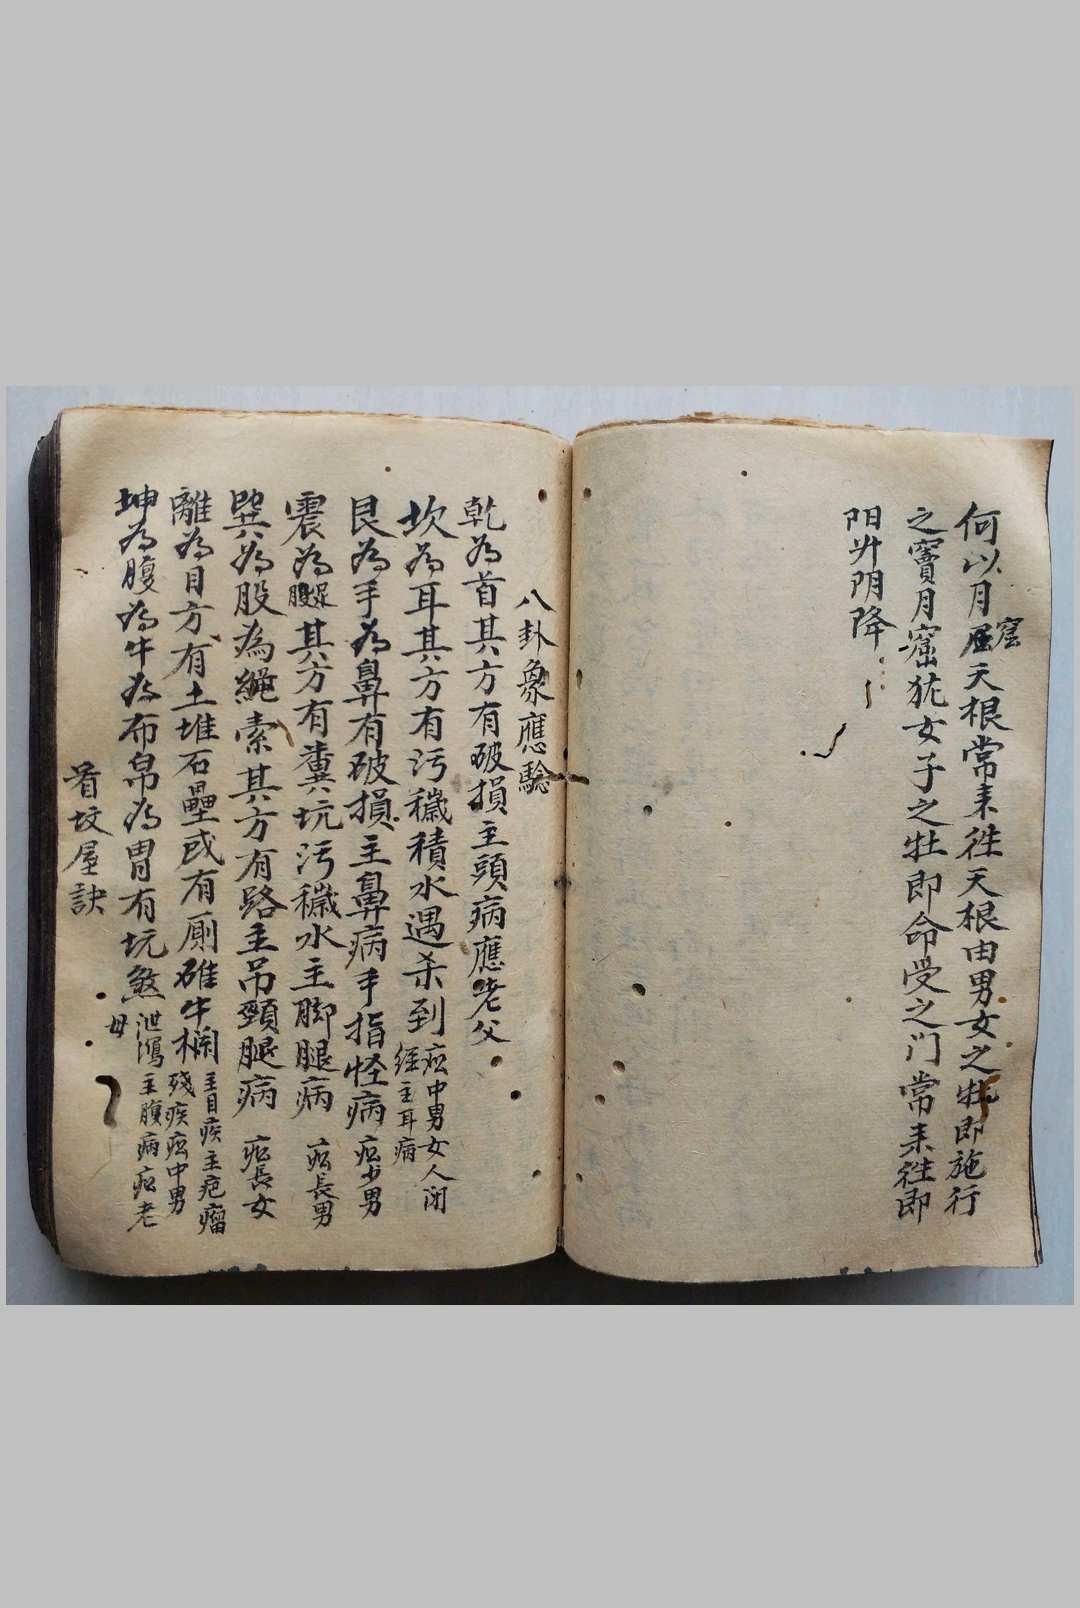 何以月窟天根常来往天根由男女之牡即施行
之竇月窟犹女子之牡即命受之门常来往即
阳升阴降
八卦象應驗
乾為首其方有破損主頭病應老父
坎為耳其方有污穢積水遇杀到症中男女人闭
經主耳病
艮為手為鼻有破損主鼻病手指怪病症少男
震為足腿其方有糞坑污穢水主脚腿病症長男
巽為股為繩索其方有路主吊頸腿病症長女
離為目方有土堆石壘或有厕碓牛栏主目疾主疤瘤
殘疾症中男
坤為腹為牛為布帛為胃有坑煞泄瀉主腹病症老
母
看坟屋訣